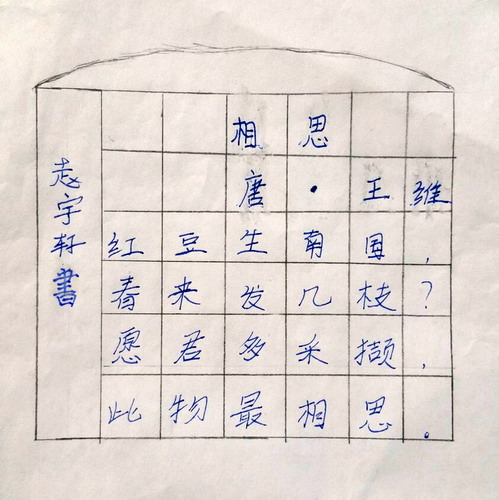 相思
唐·王维
红豆生南国，
春来发几枝？
愿君多采撷，
此物最相思。
赵宇轩書